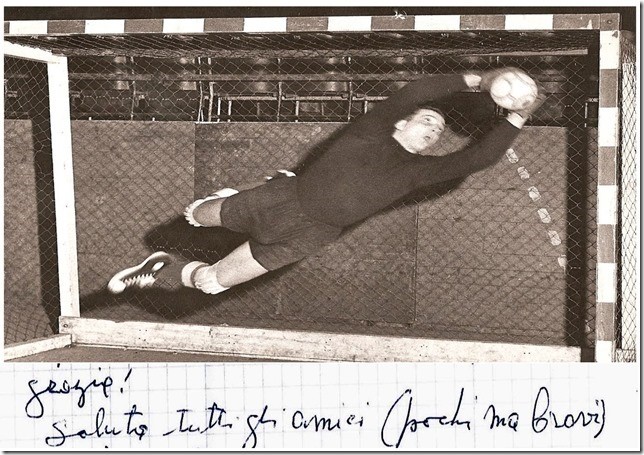 grazie!
saluta tutti gli amici (pochi ma bravi)